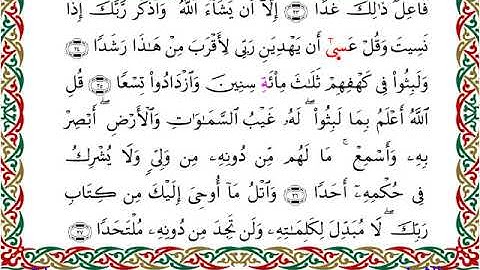 فَاعِلٌ ذَٰلِكَ غَدًا ٢٣ إِلَّا أَن يَشَاءَ اللَّهُ وَاذْكُر رَّبَّكَ إِذَا
نَسِيتَ وَقُلْ عَسَىٰ أَن يَهْدِيَنِ رَبِّي لِأَقْرَبَ مِنْ هَٰذَا رَشَدًا ٢٤
وَلَبِثُوا فِي كَهْفِهِمْ ثَلَاثَ مِائَةٍ سِنِينَ وَازْدَادُوا تِسْعًا ٢٥ قُلِ
اللَّهُ أَعْلَمُ بِمَا لَبِثُوا ۖ لَهُ غَيْبُ السَّمَاوَاتِ وَالْأَرْضِ ۖ أَبْصِرْ
بِهِ وَأَسْمِعْ ۚ مَا لَهُم مِّن دُونِهِ مِن وَلِيٍّ وَلَا يُشْرِكُ
فِي حُكْمِهِ أَحَدًا ٢٦ وَاتْلُ مَا أُوحِيَ إِلَيْكَ مِن كِتَابِ
رَبِّكَ ۖ لَا مُبَدِّلَ لِكَلِمَاتِهِ وَلَن تَجِدَ مِن دُونِهِ مُلْتَحَدًا ٢٧